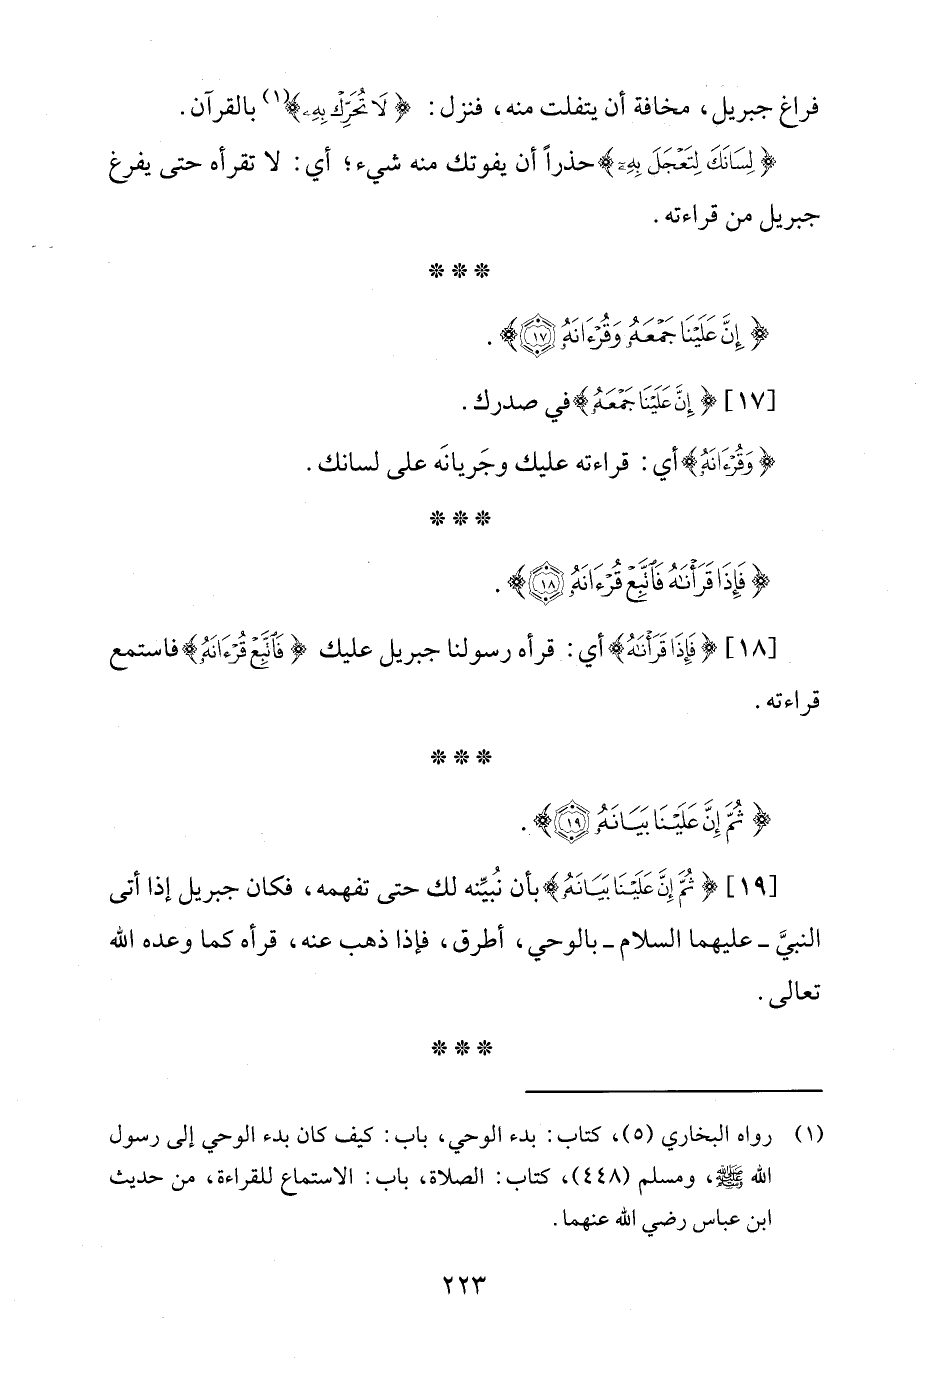 فراغ جبريل، مخافة أن يتفلت منه، فنزل: ﴿لَا تُحَرِّكْ بِهِۦ﴾(١) بالقرآن.
﴿لِسَانَكَ لِتَعْجَلَ بِهِۦٓ﴾ حذراً أن يفوتك منه شيء؛ أي: لا تقرأه حتى يفرغ
جبريل من قراءته.
* * *
﴿إِنَّ عَلَيْنَا جَمْعَهُۥ وَقُرْءَانَهُۥ ١٧﴾.
[١٧] ﴿إِنَّ عَلَيْنَا جَمْعَهُۥ﴾ في صدرك.
﴿وَقُرْءَانَهُۥ﴾ أي: قراءته عليك وجَريانَه على لسانك.
* * *
﴿فَإِذَا قَرَأْنَٰهُ فَٱتَّبِعْ قُرْءَانَهُۥ ١٨﴾.
[١٨] ﴿فَإِذَا قَرَأْنَٰهُ﴾ أي: قرأه رسولنا جبريل عليك ﴿فَٱتَّبِعْ قُرْءَانَهُۥ﴾ فاستمع
قراءته.
* * *
﴿ثُمَّ إِنَّ عَلَيْنَا بَيَانَهُۥ ١٩﴾.
[١٩] ﴿ثُمَّ إِنَّ عَلَيْنَا بَيَانَهُۥ﴾ بأن نُبيِّنه لك حتى تفهمه، فكان جبريل إذا أتى
النبيَّ ـ عليهما السلام ـ بالوحي، أطرق، فإذا ذهب عنه، قرأه كما وعده الله
تعالى.
* * *
(١) رواه البخاري (٥)، كتاب: بدء الوحي، باب: كيف كان بدء الوحي إلى رسول
الله ﷺ، ومسلم (٤٤٨)، كتاب: الصلاة، باب: الاستماع للقراءة، من حديث
ابن عباس رضي الله عنهما.
٢٢٣